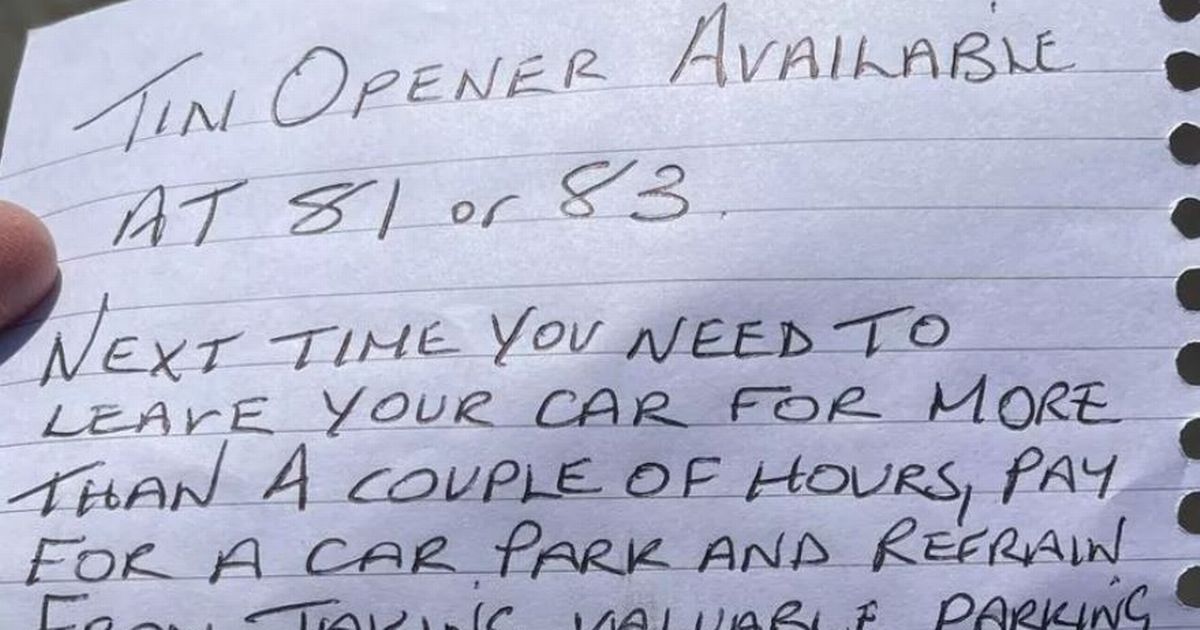 TIN OPENER AVAILABLE
AT 81 or 83.
NEXT TIME YOU NEED TO
LEAVE YOUR CAR FOR MORE
THAN A COUPLE OF HOURS, PAY
FOR A CAR PARK AND REFRAIN
FROM TAKING VALUABLE PARKING